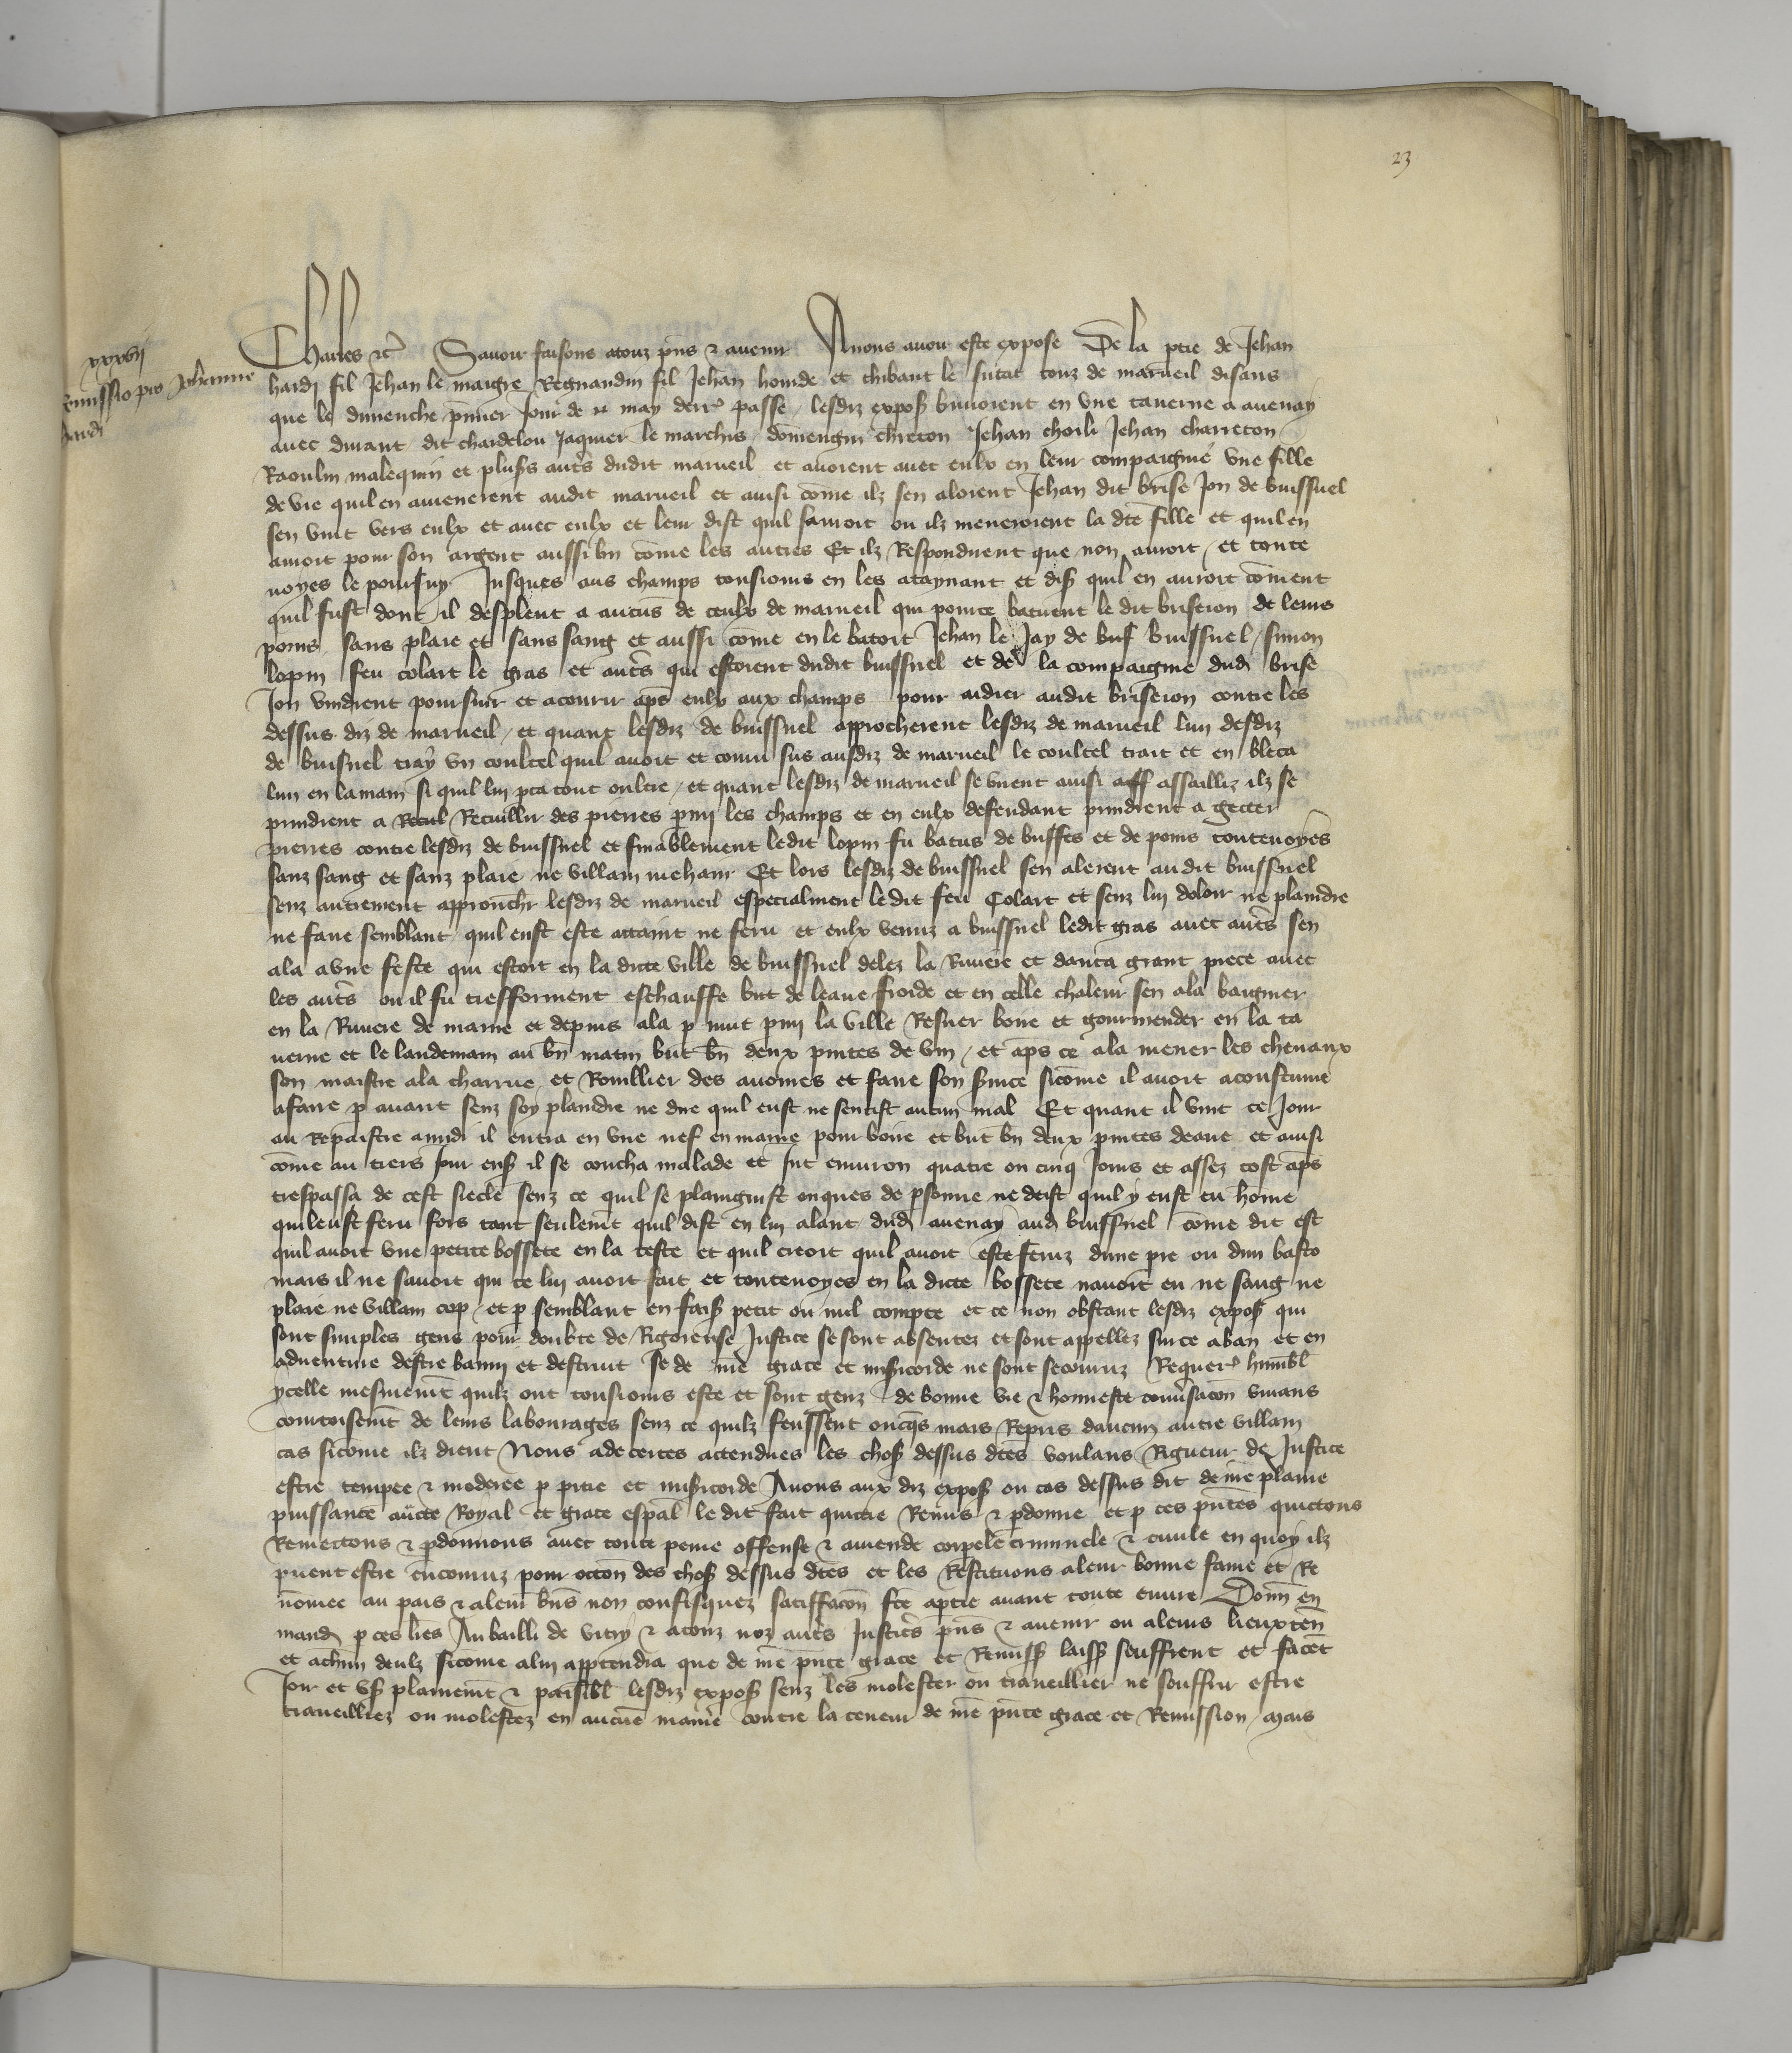 23
xxxvij
Remissio pro Johanne
hardi
Charles etc Savoir faisons a touz pns & avenir A nous avoir este expose De la ptie de Jehan
hardi fil Jehan le maigre Regnaudin fil Jehan houide et thibaut le suter touz de marueil disans
que le dimenche pmier jour de may derr passe / lesdiz expos buvoient en une taverne a avenay
avec durant dit chardelou Jaquier le marchis domengin chreton Jehan chorli Jehan charreton
Raoulin malequin et plusrs autrs dudit marueil et avoient avec eulx en leur compaignie une fille
de vie quil en amenerent audit marueil et ainsi come ilz sen aloient Jehan dit brise Jon de buissuel
sen vint vers eulx et avec eulx et leur dist quil sauroit ou ilz menroient la dte fille et quil en
auroit pour son argent aussi bn come les autres Et ilz Respondirent que non auroit / et toute
voyes le poursuy Jusques aus champs tousjours en les ataynant et dis quil en auroit coment
quil fust dont il despleut a aucus de ceulx de marueil qui pour ce batirent le dit briseion de leurs
poins sans plaie et sans sang et aussi come en le batoit Jehan le Jay de buissuel / simon
lopin feu colart le gras et autrs qui estoient dudit buissuel et de la compaignie dud brise
Jon vindrent poursuir et acourir aps eulx aux champs pour aidier audit briseion contre les
dessus diz de marueil / et quant lesdiz de buissuel approcherent lesdiz de marueil lun desdiz
de buissuel tray un coultel quil avoit et couru sus ausdiz de marueil le coultel trait et en bleca
lun en la main si quil lui pca tout oultre / et quant lesdiz de marueil se virent ainsi assailliz ilz se
prindrent a Recuillir des pierres pmi les champs et en eulx defendant prindrent a getter
pierres contre lesdiz de buissuel et finablement ledit lopin fu batus de buffes et de poins toutevoyes
sanz sang et sanz plaie ne villain mehain Et lors lesdiz de buissuel sen alerent audit buissuel
senz autrement approuchr lesdiz de marueil especialment le dit feu Colart et senz lui doloir ne plaindre
ne faire semblant quil eust este attaint ne feru et eulx venuz a buissuel ledit gras avec autrs sen
ala a une feste qui estoit en la dicte ville de buissuel delez la Riviere et danca grant piece avec
les autrs ou il fu tresforment eschauffe but de leaue froide et en celle chaleur sen ala baignier
en la Riviere de marne et depuis ala p nuit pmi la ville Resver boire et gourmender en la ta
verne et le landemain au bn matin but bn deux pintes de vin / et aps ce ala mener les chevaux
son maistre a la charrue et Rouillier des avoines et faire son svice sicome il avoit acoustume
a faire p avant senz soy plaindre ne dire quil eust ne sentist aucun mal Et quant il vint ce Jour
au Repaistre a midi il entra en une nef en marne pour boire et but bn deux pintes deaue et ainsi
come au tiers jour ens il se coucha malade et jut environ quatre ou cinq Jours et assez tost aps
trespassa de cest siecle senz ce quil se plaingnist onques de psonne ne deist quil y eust eu home
qui leust feru fors tant seulemt quil dist en lui alant dud avenay aud buissuel come dit est
quil avoit une petite bossete en la teste et quil creoit quil avoit este feruz dune pre ou dun basto
mais il ne savoit qui ce lui avoit fait et toutevoyes en la dicte bossete navoit eu ne sang ne
plaie ne villain cop / et p semblant en fais petit ou nul compte et ce non obstant lesdiz expos qui
sont simples gens pour doubte de Rigoreuse Justice se sont absentez et sont appellez sur ce a ban et en
adventure destre banni et destruit se de nre grace et misicorde ne sont secouruz Requer humbl
ycelle mesmemt quilz ont tousjours este et sont genz de bonne vie & honneste convsacon vivans
courtoisemt de leurs labourages senz ce quilz feussent oncqs mais Repris daucun autre villain
cas sicome ilz dient Nous adecertes attendues les chos dessus dtes voulans Rigueur de Justice
estre tempee & moderee p pitie et misicorde Avons aux diz expos ou cas dessus dit de nre plaine
puissance aucte Royal et grace espal le dit fait quitte Remis & pdonne et p ces pntes quictons
Remettons & pdonnons avec toute peine offense & amende corpele criminele & civile en quoy ilz
puent estre encouruz pour occon des chos dessus dtes et les Restituons a leur bonne fame et Re
nomee au pais & a leur bns non confisquez satiffacon fte a ptie avant toute euvre Donn en
mand p ces lres Au bailli de vitry & a touz noz autrs Justicrs pns & avenir ou a leurs lieuxten
et achun deulz sicome a lui apptendra que de nre pnte grace et Remiss laiss seuffrent et facet
Joir et us plainemt & paisibl lesdiz expos senz les molester ou traveillier ne souffrir estre
traveilliez ou molestez en aucue manie contre la teneur de nre pnte grace et Remission / Mais